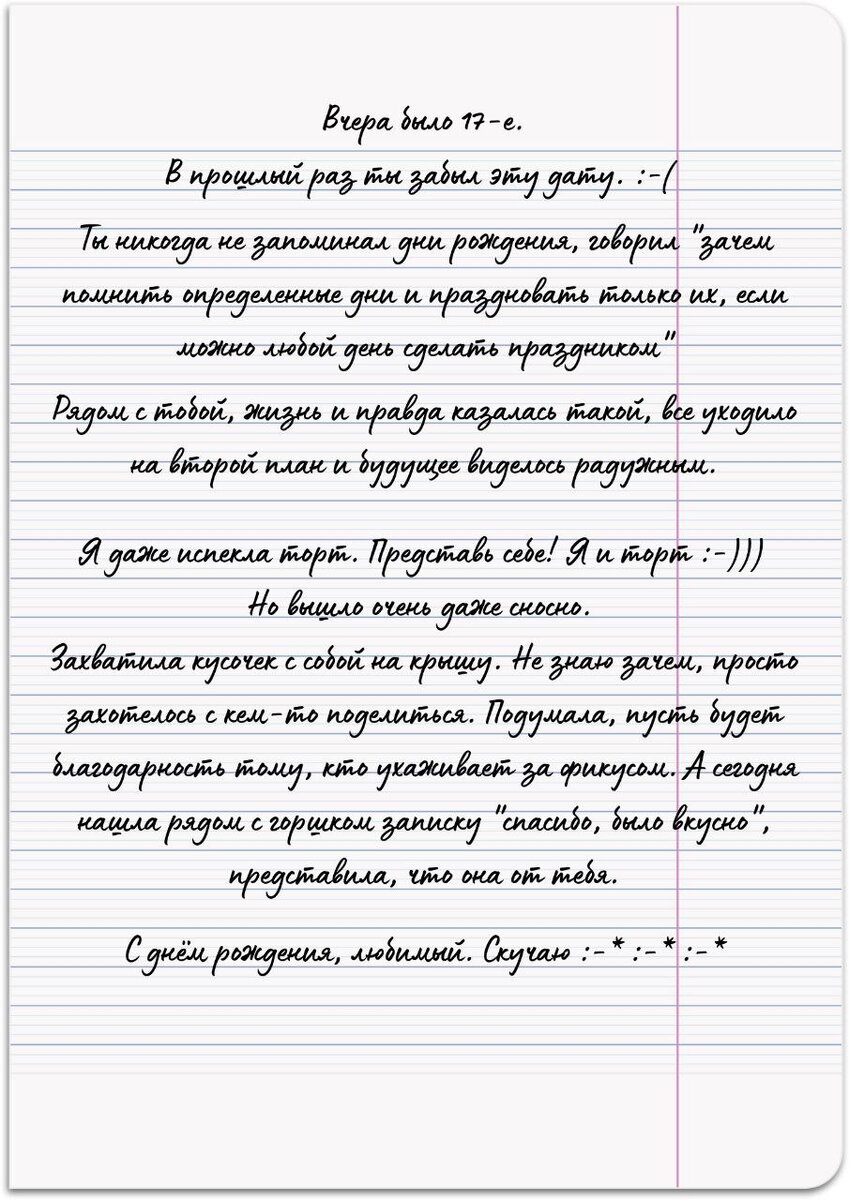 Вчера было 17-е.
В прошлый раз ты забыл эту дату. :-(
Ты никогда не запоминал дни рождения, говорил "зачем
помнить определенные дни и праздновать только их, если
можно любой день сделать праздником"
Рядом с тобой, жизнь и правда казалась такой, все уходило
на второй план и будущее виделось радужным.
Я даже испекла торт. Представь себе! Я и торт :-)))
Но вышло очень даже сносно.
Захватила кусочек с собой на крышу. Не знаю зачем, просто
захотелось с кем-то поделиться. Подумала, пусть будет
благодарность тому, кто ухаживает за фикусом. А сегодня
нашла рядом с горшком записку "спасибо, было вкусно",
представила, что она от тебя.
С днём рождения, любимый. Скучаю :-* :-* :-*